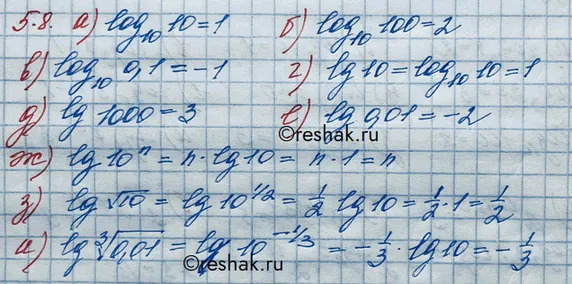 5.8. а) log₁₀ 10 = 1 б) log₁₀ 100 = 2
в) log₁₀ 0,1 = -1 г) lg 10 = log₁₀ 10 = 1
д) lg 1000 = 3 е) lg 0,01 = -2
©reshak.ru
ж) lg 10ⁿ = n · lg 10 = n · 1 = n
з) lg √10 = lg 10^(1/2) = 1/2 lg 10 = 1/2 · 1 = 1/2
и) lg ∛0,01 = lg 10^(-1/3) = -1/3 · lg 10 = -1/3
©reshak.ru